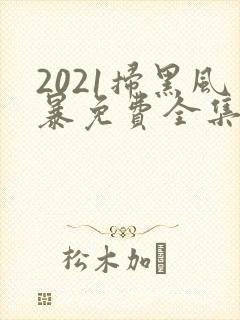 2021掃黑風
暴免費全集
松木加